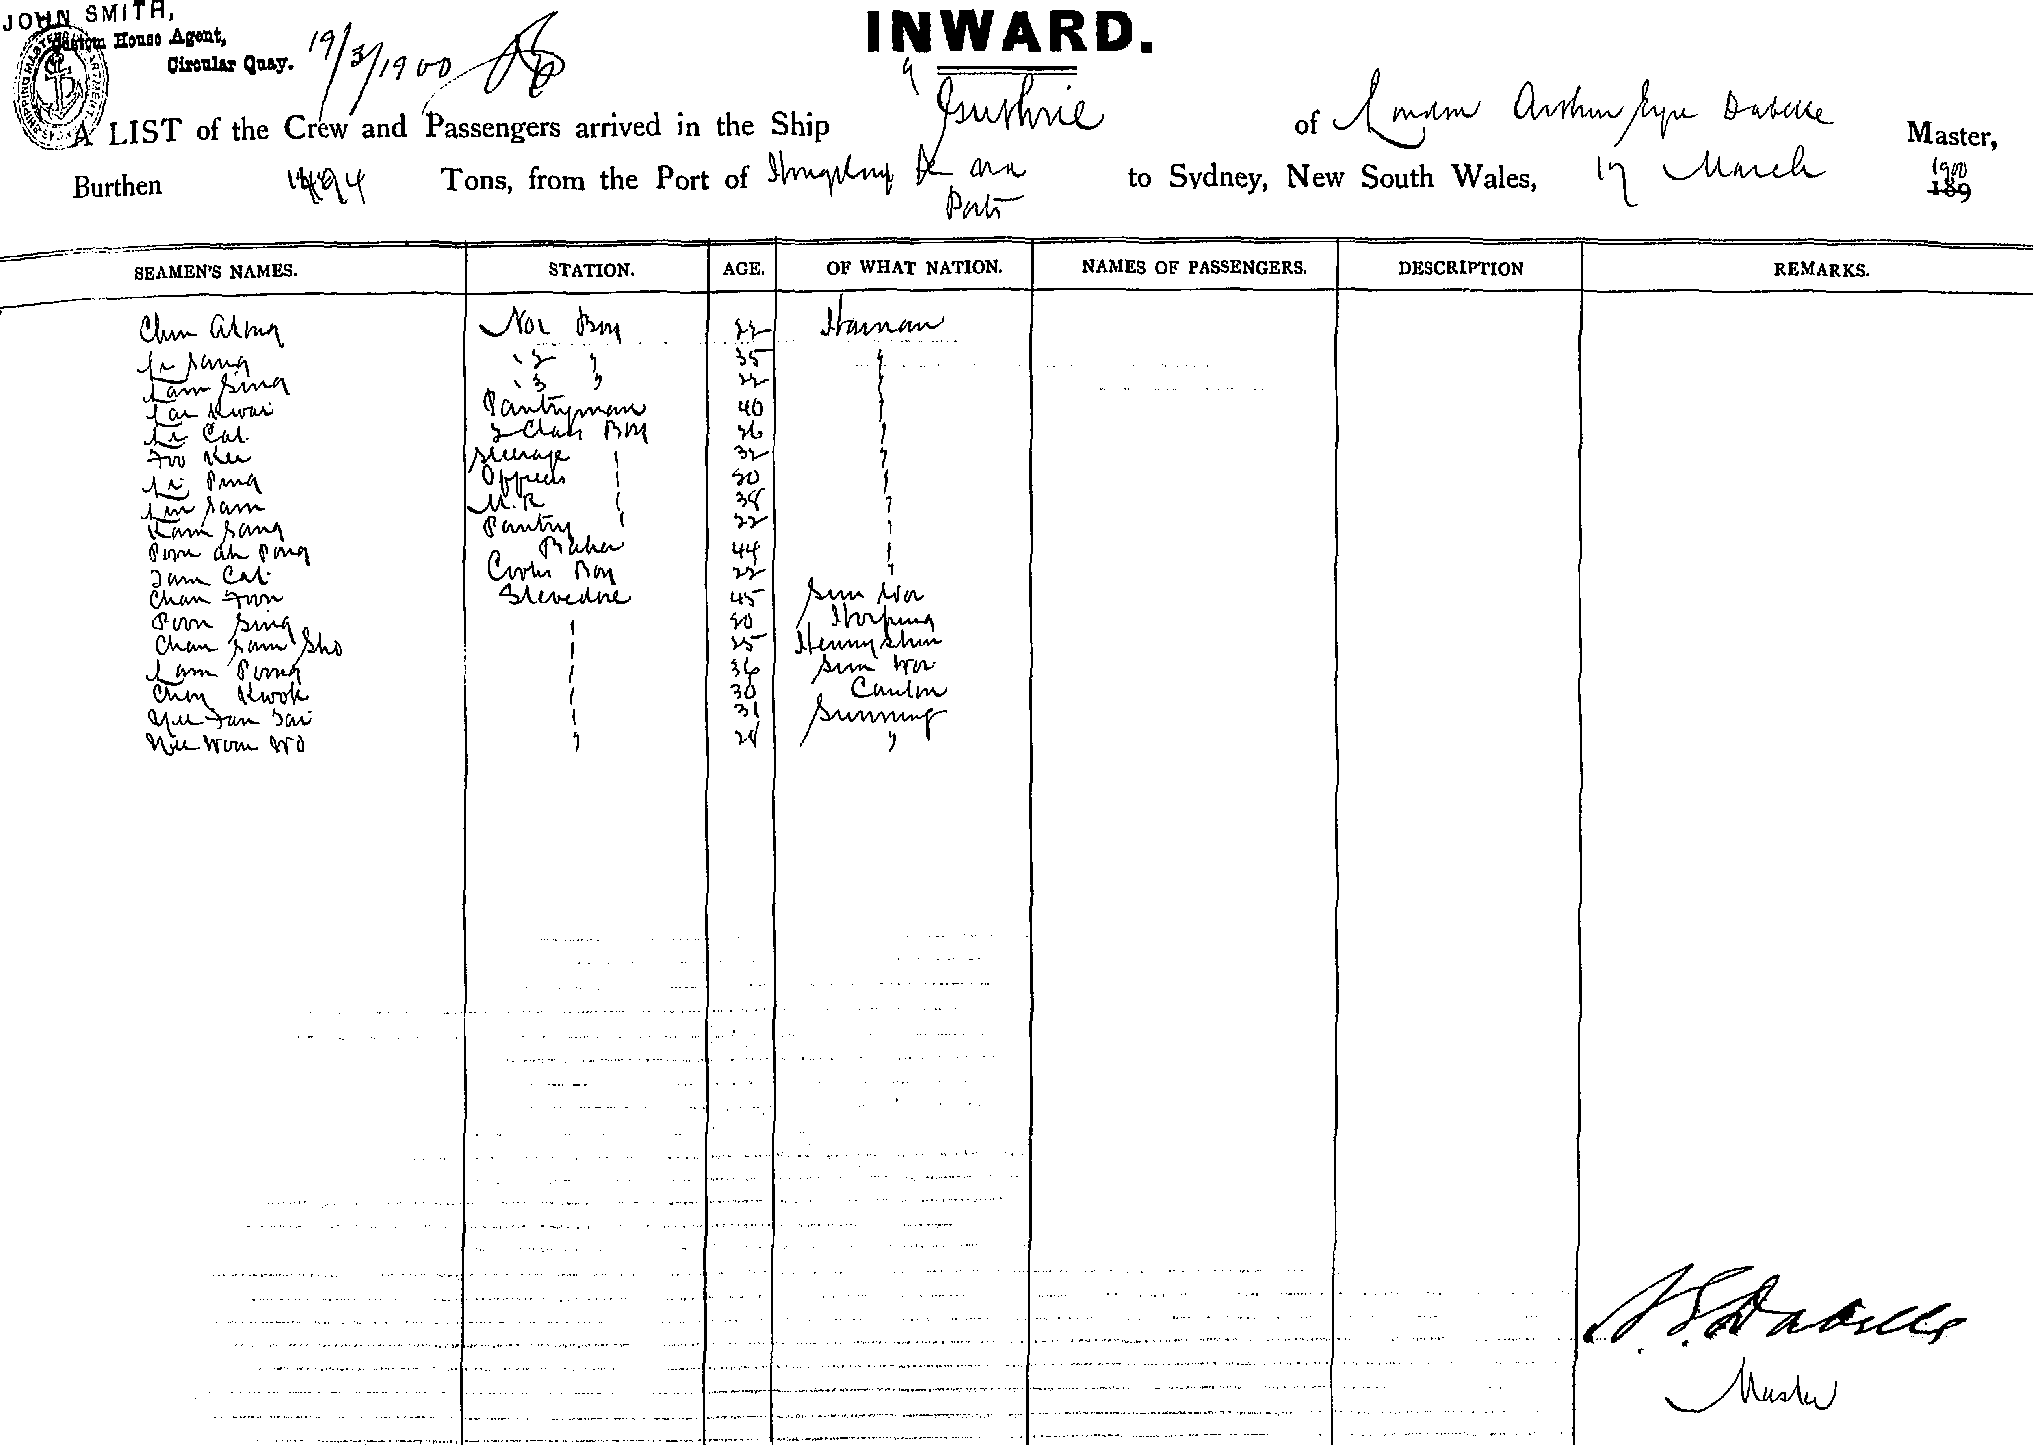 JOHN SMITH,
Custom House Agent,
Circular Quay.
19/3/1900
INWARD.
A LIST of the Crew and Passengers arrived in the Ship Guthrie of London Arthur Eyre Dabelle Master,
Burthen 1494 Tons, from the Port of Hongkong & via Ports to Sydney, New South Wales, 17 March 1900 189
SEAMEN'S NAMES. STATION. AGE. OF WHAT NATION. NAMES OF PASSENGERS. DESCRIPTION REMARKS.
Chun Along No1 Boy 22 Hainan
Li Sang " 2 " 35 "
Lam Sing " 3 " 22 "
Lai Kwai Pantryman 40 "
Li Cat 2 Class Boy 26 "
Foo Kee Steerage " 32 "
Li Ping Officers " 20 "
Lin Sam M.R " 38 "
Kam Sang Pantry " 22 "
Poon ah Pong Baker 44 "
Tam Cat Cooks Boy 22 "
Chan Foon Stevedore 45 Sun Woi
Poon Sing " 20 Hoiping
Chan Sam Sho " 25 Heungshan
Lam Poong " 36 Sun Woi
Choy Kwok " 30 Canton
Yee Fan Tai " 31 Sunning
Yee Woon Wo " 28 "
A. E. Dabelle
Master